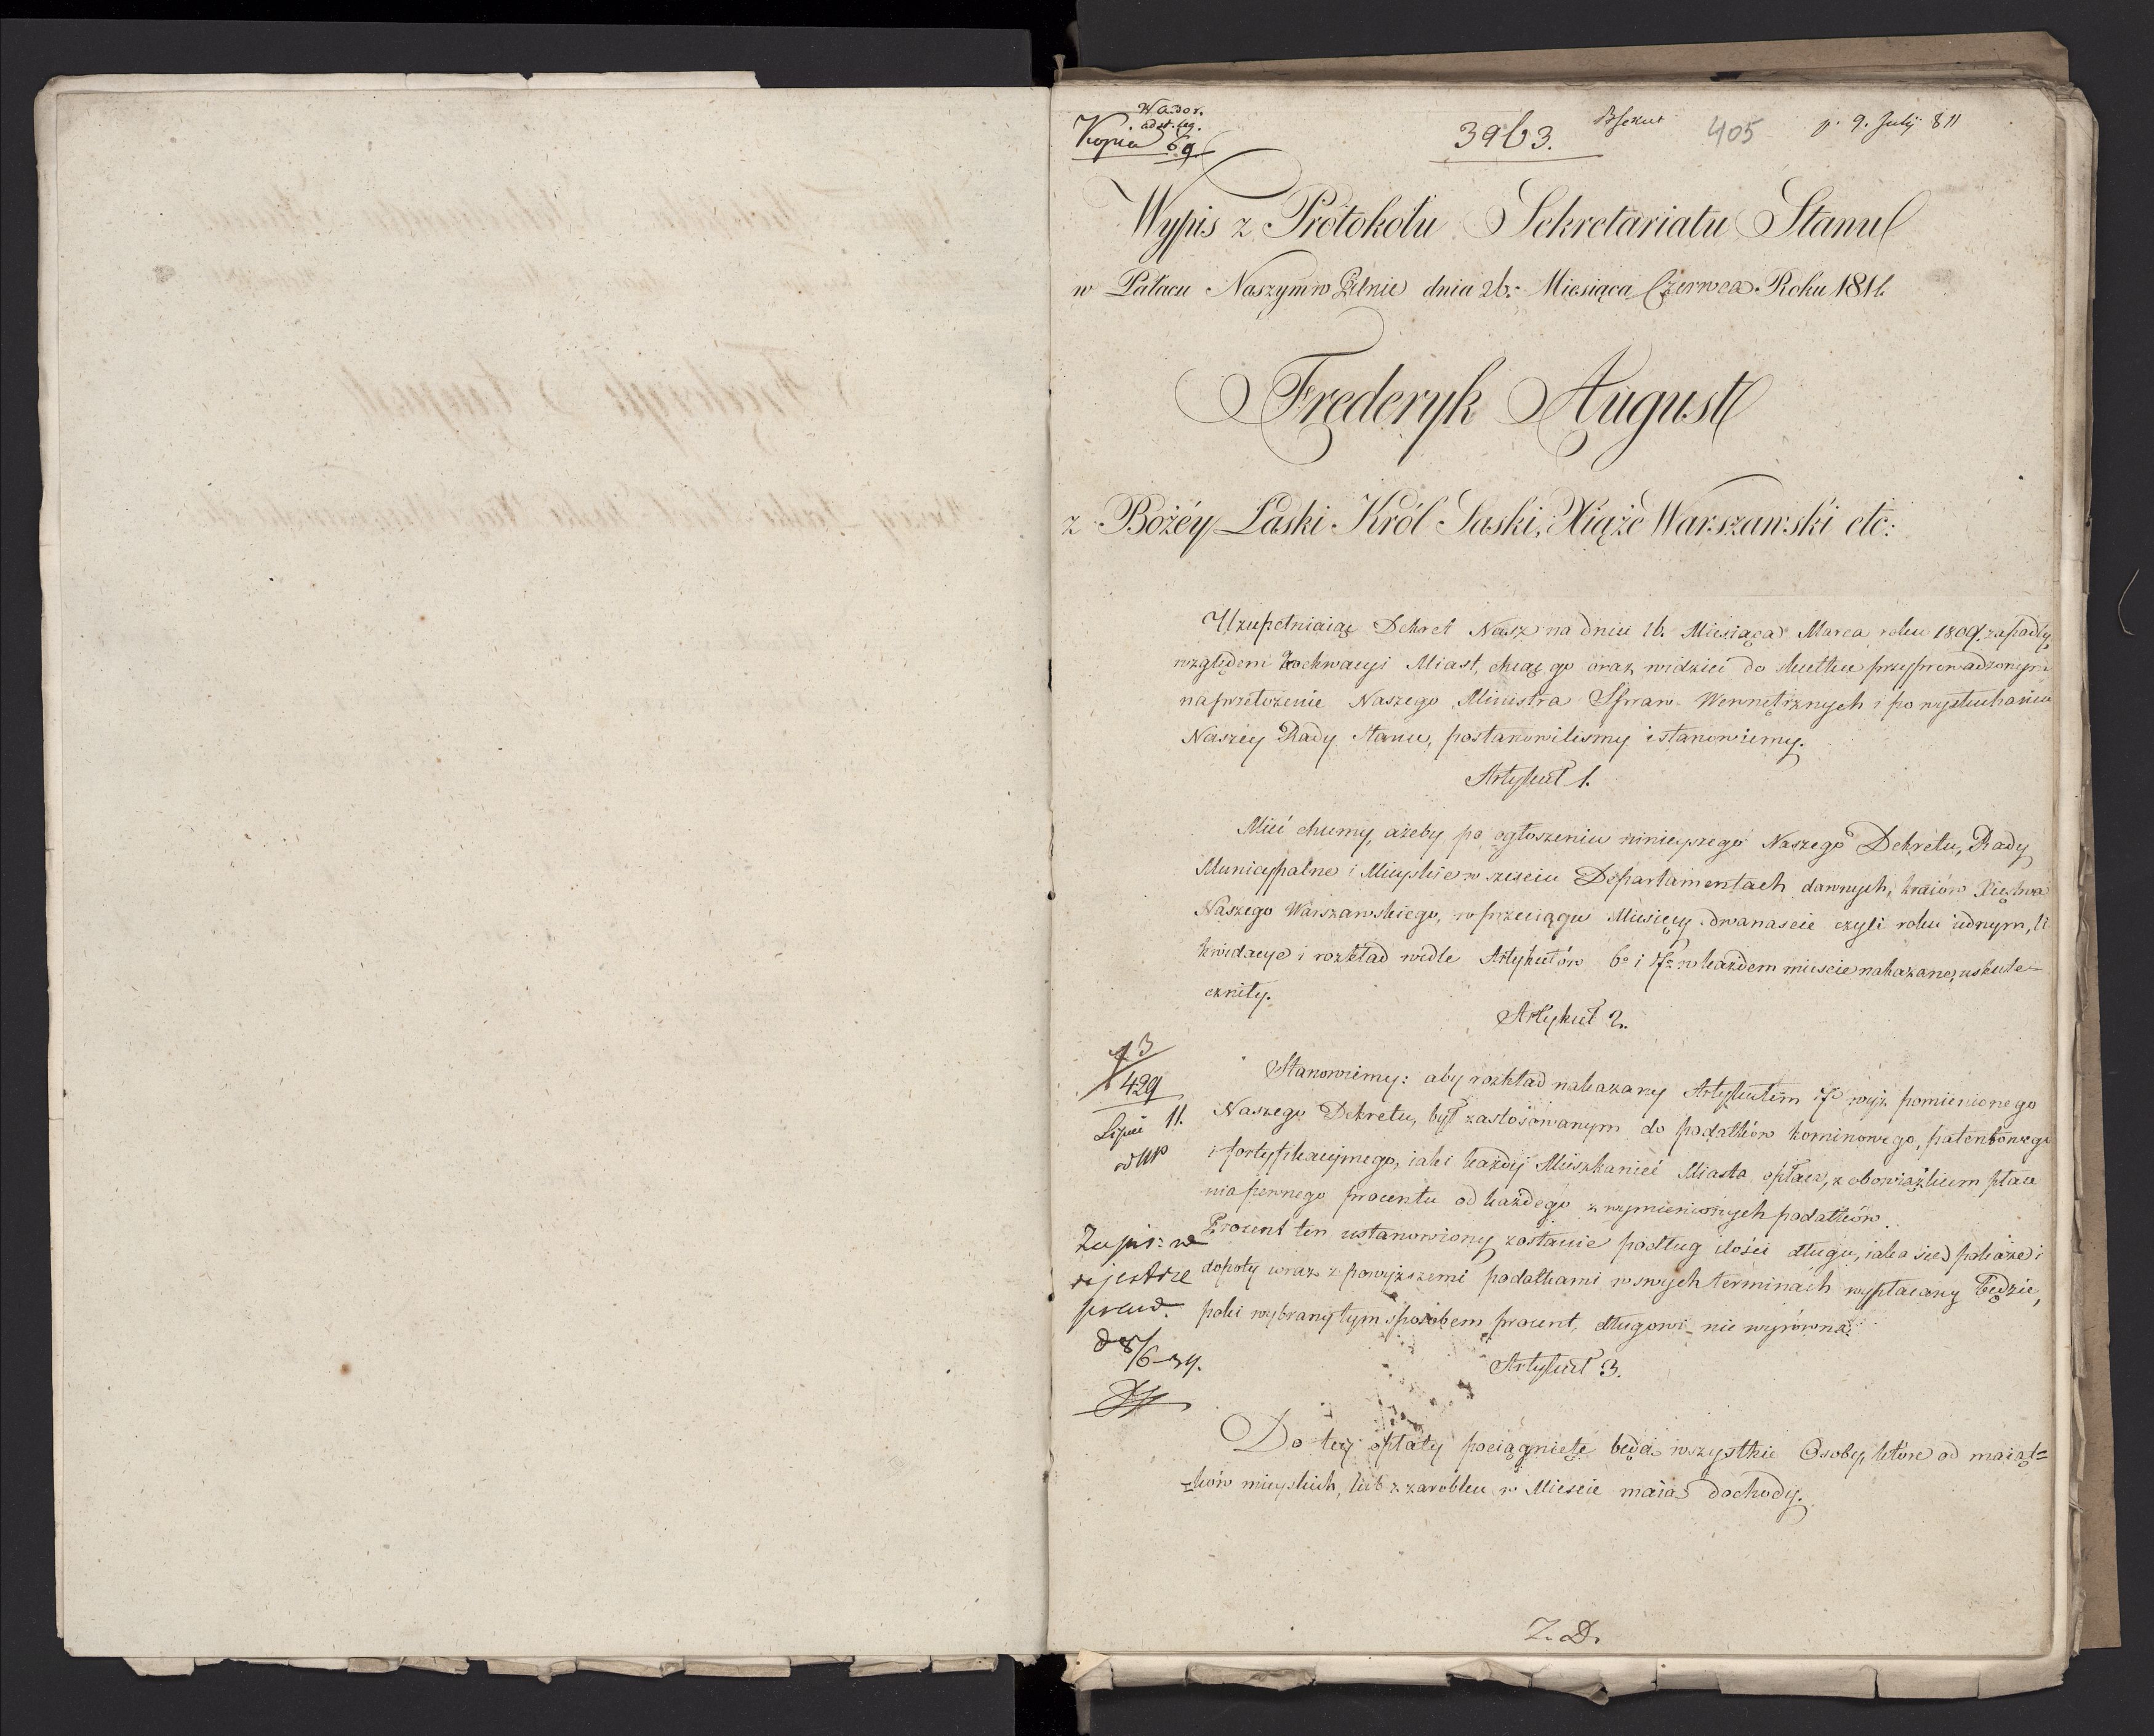 Wador.
ad st. leg.
Kopia 69
3963.
405
p. 9. July 811
Wypis z Protokołu Sekretariatu Stanu
w Pałacu Naszym w Pilnie dnia 26. Miesiąca Czerwca Roku 1811.
Frederyk August
z Bożéy Łaski Król Saski, Xiąże Warszawski etc:
Uzupełniaiąc Dekret Nasz na dniu 16. Miesiąca Marca roku 1809. zapadły,
względem Lochwacyi Miast, chcąc go oraz widzieć do skutku przyprowadzonym
na przełożenie Naszego Ministra Spraw Wewnętrznych i po wysłuchaniu
Naszey Rady Stanu, postanowilismy i stanowiemy.
Artykuł 1.
Mieć chcemy, ażeby po ogłoszeniu ninieyszego Naszego Dekretu, Rady
Municypalne i Mieyskie w sześciu Departamentach dawnych, kraiów Xięstwa
Naszego Warszawskiego, w przeciągu Miesięcy dwanaście czyli roku iednym, li
kwidacye i rozkład wedle Artykułów 6o i 7o w każdem mieście nakazane, uskute=
czniły.
Artykuł 2.
Stanowiemy: aby rozkład nakazany Artykułem 7o wyż pomienionego
Naszego Dekretu, był zastosowanym do podatków kominowego, patentowego
i fortyfikacyinego, iaki każdy Mieszkaniec Miasta opłaca, z obowiązkiem płace
nia pewnego procentu od każdego z wymienionych podatków.
Procent ten ustanowiony zostanie podług ilości długu, iaka się pokaże i
dopóty wraz z powyższemi podatkami w swych terminach wypłacany będzie,
póki wybrany tym sposobem procent, długowi nie wyrówna.
43
429
Lipiec 11.
Zapis: w
rejestrze
prawd.
d 8/6-34.
Artykuł 3.
Do tey opłaty pociągnięte będą wszystkie Osoby, które od maiąt=
=ków mieyskich, lub z zarobku w Mieście maią dochody.
Z. D.